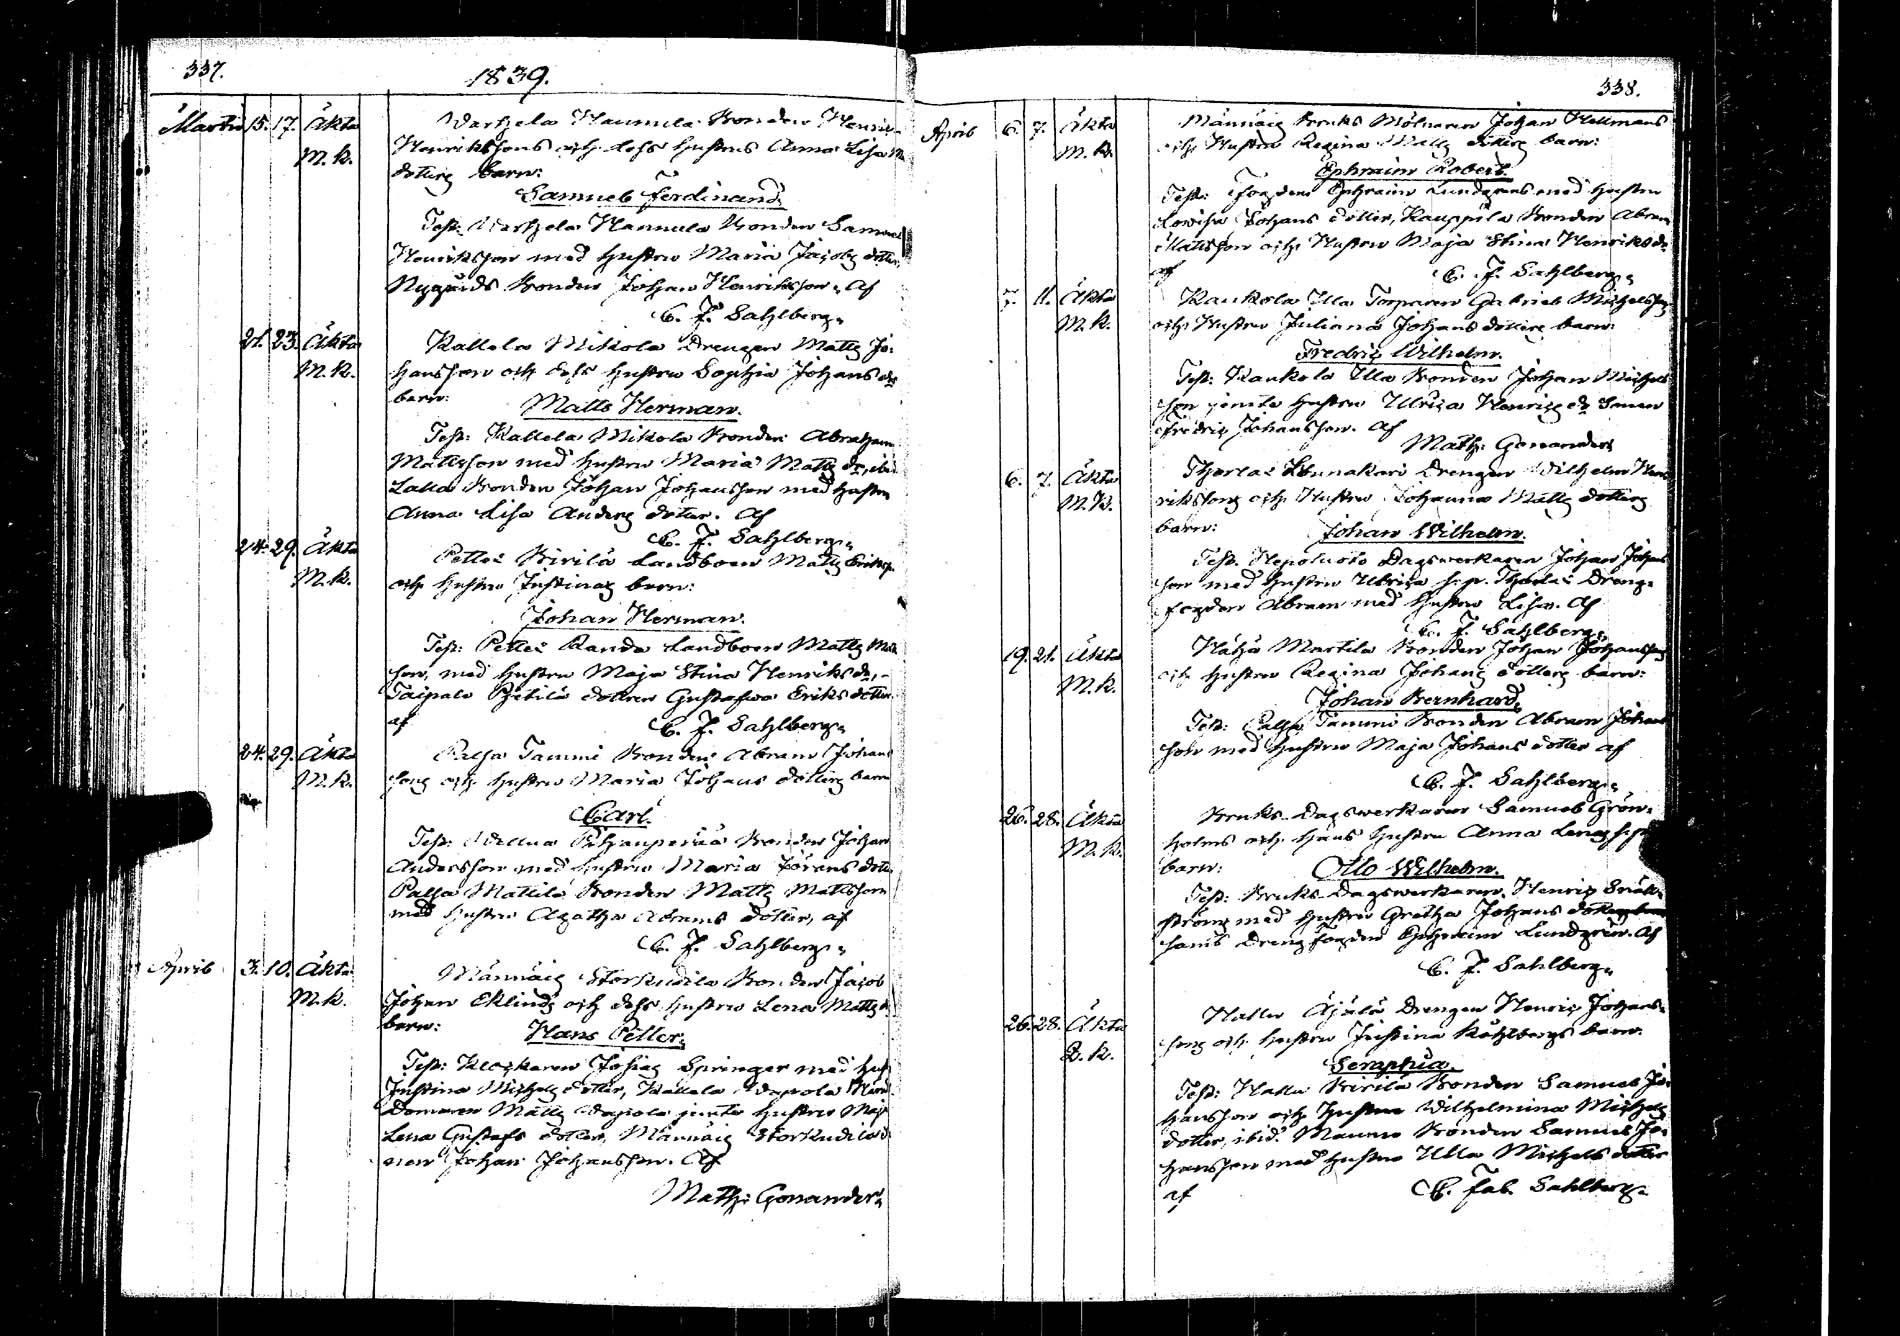 337.
1839.
Martii 15. 17. Äkta
M. k.
Wartzela Hannula Bonden Henric
Henrikssons och dess hustrus Anna Lisa M
dotters barn:
Samuel Ferdinand.
Test: Wartzela Hannula Bonden Samuel
Henriksson med hustru Maria Jacobs dotter,
Nygårds Bonden Johan Henriksson. Af
C. F. Sahlberg.
21. 23. Äkta
M. k.
Kallela Mikola Drengen Matts Jo-
hansson och dess hustru Sophia Johans dr
barn:
Matts Herman.
Test: Kallela Mikola Bonden Abraham
Mattsson med hustru Maria Matts dr, ibid
Lalla Bonden Johan Johansson med hustru
Anna Lisa Anders dotter. Af
C. F. Sahlberg.
24. 29. Äkta
M. k.
Pettes Kirilä Landboen Matts Eriks
och hustru Justinas barn:
Johan Herman.
Test: Pettes Randa Landboen Matts Matts
son, med hustru Maja Stina Henriks dr,
Taipale Pjetilä dottren Gustafva Eriks dotter.
af
C. F. Sahlberg.
24. 29. Äkta
M. k.
Palja Tammi Bonden Abram Johans
sons och hustru Maria Johans dotters barn
Carl.
Test: Wellua Bonden Johan
Andersson med hustru Maria Jörans dotter
Palja Mattila Bonden Matts Mattsson
med hustru Agatha Abrams dotter, af
C. F. Sahlberg.
April 3. 10. Äkta
M. k.
Männäis Storkudila Bonden Jacob
Johan Eklinds och dess hustru Lena Matts d
barn:
Hans Petter.
Test: Klockaren Josias Springer med hust
Justina Michels dotter, Kallela Wapola
Matts Wapola jemte hustru Maja
Lena Gustafs dotter, Männäis Storkudila
Johan Johansson. Af
Math: Gonander.
338.
April 6. 7. Äkta
M. k.
Männäis Bruks Mölnaren Johan Hellmans
och Hustru Regina Matts dotters barn:
Ephraim Robert.
Test: Fogden Ephraim Lundgrens med hustru
Lovisa Johans dotter, Kauppila Bonden Abram
Mattsson och Hustru Maja Stina Henriks dr
af
C. F. Sahlberg.
7. 11. Äkta
M. k.
Kaukola Ylla Torparen Gabriel Michelssons
och Hustru Juliana Johans dotters barn:
Fredric Wilhelm.
Test: Kaukola Ylla Bonden Johan Michels
son jemte hustru Ulrica Henrics dr Sonen
Fredric Johansson. Af
Math: Gonander
6. 7. Äkta
M. k.
Tharlais Lonnakari Drengen Wilhelm Hen
rikssons och Hustru Johanna Matts dotters
barn:
Johan Wilhelm.
Test. Dagsverkaren Johan Johans
son med hustru Ulrica Dreng-
fogden Abram med hustru Lisa. Af
C. F. Sahlberg.
19. 21. Äkta
M. k.
Martila Bonden Johan Johanssons
och hustru Regina Johans dotters barn:
Johan Bernhard.
Test: Palja Tammi Bonden Abram Johans
son med hustru Maja Johans dotter af
C. F. Sahlberg.
26. 28. Äkta
M. k.
Bruks Dagsverkaren Samuel Grön-
holms och hans hustru Anna Lenas
barn:
Otto Wilhelm.
Test: Bruks Dagsverkaren Henric
ström med hustru Gretha Johans dotter
Drengfogden Ephraim Lundgren. Af
C. F. Sahlberg.
26. 28. Äkta
Q. k.
Hallu Äjälä Drengen Henric Johans-
sons och hustru Justina Kohlbergs barn:
Seraphia.
Test: Hallu Kirilä Bonden Samuel Jo-
hansson och hustru Wilhelmina Michels
dotter, ibid. Mannu Bonden Samuel Jo-
hansson med hustru Ulla Michels dotter
af
C. Fab. Sahlberg.